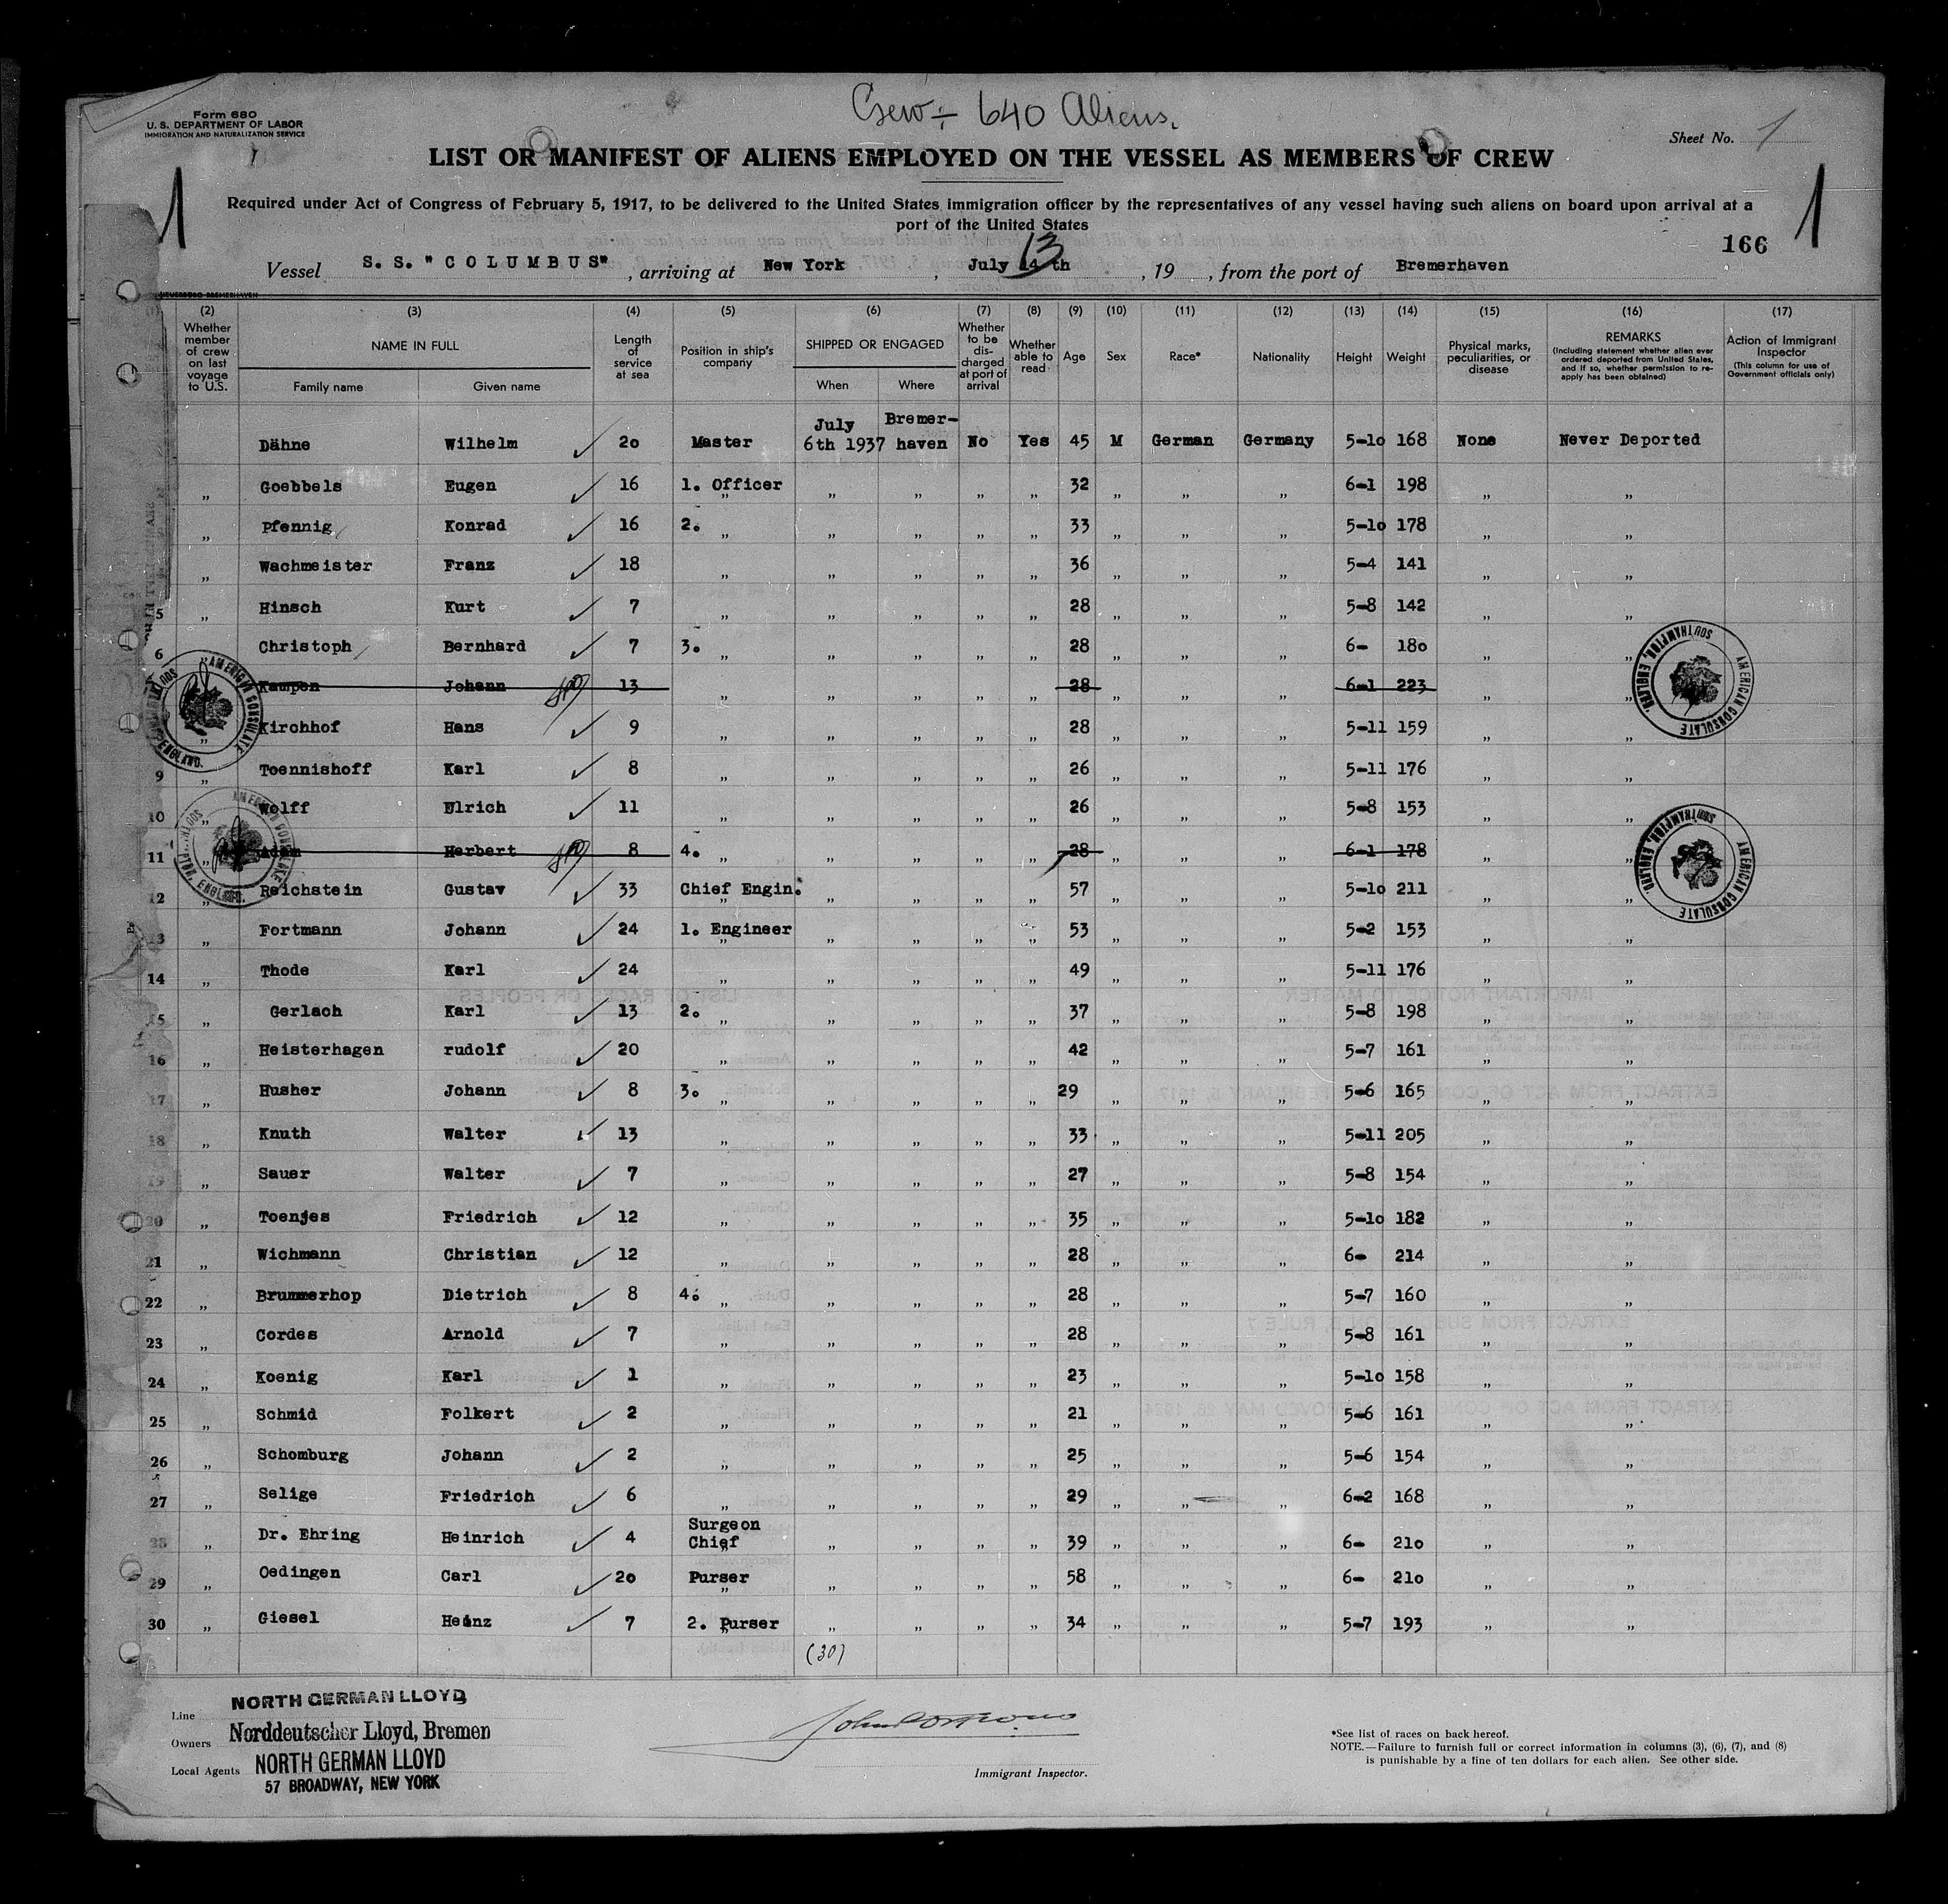 Crew ÷ 640 Aliens.
Form 680
U. S. DEPARTMENT OF LABOR
IMMIGRATION AND NATURALIZATION SERVICE
Sheet No. 1
LIST OR MANIFEST OF ALIENS EMPLOYED ON THE VESSEL AS MEMBERS OF CREW
1
1
Required under Act of Congress of February 5, 1917, to be delivered to the United States immigration officer by the representatives of any vessel having such aliens on board upon arrival at a
port of the United States
166
Vessel S. S. "COLUMBUS", arriving at New York, July 14th 13, 19 , from the port of Bremerhaven
(2) (3) (4) (5) (6) (7) (8) (9) (10) (11) (12) (13) (14) (15) (16) (17)
Whether member of crew on last voyage to U.S. NAME IN FULL Family name Given name Length of service at sea Position in ship's company SHIPPED OR ENGAGED When Where Whether to be discharged at port of arrival Whether able to read Age Sex Race* Nationality Height Weight Physical marks, peculiarities, or disease REMARKS (Including statement whether alien ever ordered deported from United States, and if so, whether permission to re-apply has been obtained) Action of Immigrant Inspector (This column for use of Government officials only)
Dähne Wilhelm ✓ 20 Master July 6th 1937 Bremer-haven No Yes 45 M German Germany 5-10 168 None Never Deported
„ Goebbels Eugen ✓ 16 1. Officer „ „ „ „ „ 32 „ „ „ 6-1 198 „ „
„ Pfennig Konrad ✓ 16 2. „ „ „ „ „ 33 „ „ „ 5-10 178 „ „
„ Wachmeister Franz ✓ 18 „ „ „ „ „ 36 „ „ „ 5-4 141 „ „
5 „ Hinsch Kurt ✓ 7 „ „ „ „ „ 28 „ „ „ 5-8 142 „ „
6 „ Christoph Bernhard ✓ 7 3. „ „ „ „ „ 28 „ „ „ 6- 180 „ „
Kampen Johann 13 „ „ „ „ „ 28 „ „ „ 6-1 223 „ „
„ Kirchhof Hans ✓ 9 „ „ „ „ „ 28 „ „ „ 5-11 159 „ „
9 „ Toennishoff Karl ✓ 8 „ „ „ „ „ 26 „ „ „ 5-11 176 „ „
10 „ Wolff Ulrich ✓ 11 „ „ „ „ „ 26 „ „ „ 5-8 153 „ „
11 „ Adam Herbert 8 4. „ „ „ „ „ 28 „ „ „ 6-1 178 „ „
12 „ Reichstein Gustav ✓ 33 Chief Engin. „ „ „ „ „ 57 „ „ „ 5-10 211 „ „
13 „ Fortmann Johann ✓ 24 1. Engineer „ „ „ „ „ 53 „ „ „ 5-2 153 „ „
14 „ Thode Karl ✓ 24 „ „ „ „ „ 49 „ „ „ 5-11 176 „ „
15 „ Gerlach Karl ✓ 13 2. „ „ „ „ „ 37 „ „ „ 5-8 198 „ „
16 „ Heisterhagen rudolf ✓ 20 „ „ „ „ „ 42 „ „ „ 5-7 161 „ „
17 „ Husher Johann ✓ 8 3. „ „ „ „ „ 29 „ „ „ 5-6 165 „ „
18 „ Knuth Walter ✓ 13 „ „ „ „ „ 33 „ „ „ 5-11 205 „ „
19 „ Sauer Walter ✓ 7 „ „ „ „ „ 27 „ „ „ 5-8 154 „ „
20 „ Toenjes Friedrich ✓ 12 „ „ „ „ „ 35 „ „ „ 5-10 182 „ „
21 „ Wichmann Christian ✓ 12 „ „ „ „ „ 28 „ „ „ 6- 214 „ „
22 „ Brummerhop Dietrich ✓ 8 4. „ „ „ „ „ 28 „ „ „ 5-7 160 „ „
23 „ Cordes Arnold ✓ 7 „ „ „ „ „ 28 „ „ „ 5-8 161 „ „
24 „ Koenig Karl ✓ 1 „ „ „ „ „ 23 „ „ „ 5-10 158 „ „
25 „ Schmid Folkert ✓ 2 „ „ „ „ „ 21 „ „ „ 5-6 161 „ „
26 „ Schomburg Johann ✓ 2 „ „ „ „ „ 25 „ „ „ 5-6 154 „ „
27 „ Selige Friedrich ✓ 6 „ „ „ „ „ 29 „ „ „ 6-2 168 „ „
28 „ Dr. Ehring Heinrich ✓ 4 Surgeon Chief „ „ „ „ „ 39 „ „ „ 6- 210 „ „
29 „ Oedingen Carl ✓ 20 Purser „ „ „ „ „ 58 „ „ „ 6- 210 „ „
30 „ Giesel Heinz ✓ 7 2. Purser „ „ „ „ „ 34 „ „ „ 5-7 193 „ „
(30)
AMERICAN CONSULATE SOUTHAMPTON, ENGLAND.
AMERICAN CONSULATE SOUTHAMPTON, ENGLAND.
AMERICAN CONSULATE SOUTHAMPTON, ENGLAND.
AMERICAN CONSULATE SOUTHAMPTON, ENGLAND.
Line NORTH GERMAN LLOYD
Owners Norddeutscher Lloyd, Bremen
Local Agents NORTH GERMAN LLOYD
57 BROADWAY, NEW YORK
Immigrant Inspector.
*See list of races on back hereof.
NOTE.—Failure to furnish full or correct information in columns (3), (6), (7), and (8)
is punishable by a fine of ten dollars for each alien. See other side.